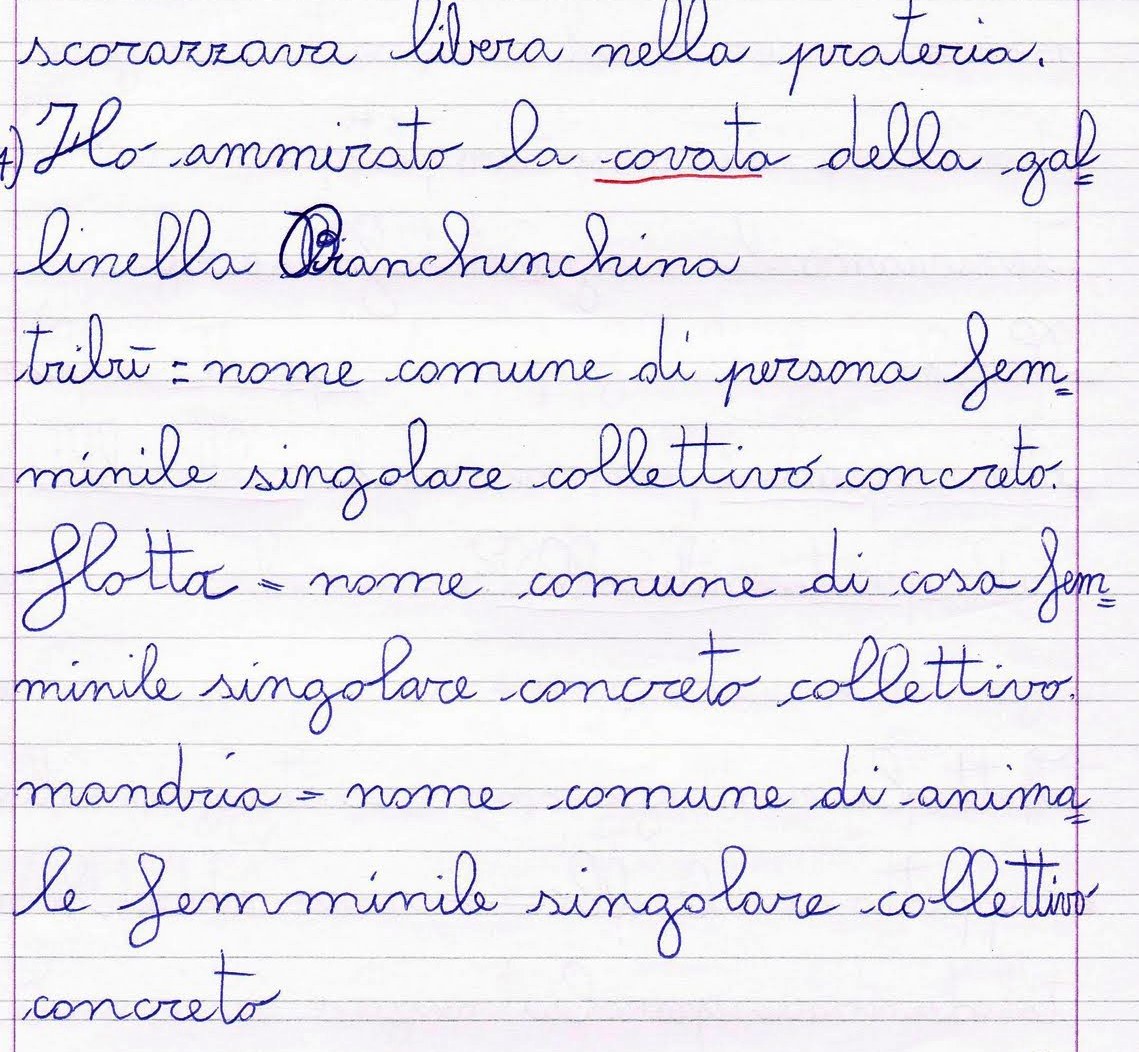 scorazzava libera nella prateria.
4) Ho ammirato la covata della gal=
linella Bianchinchina
tribù = nome comune di persona fem=
minile singolare collettivo concreto.
flotta = nome comune di cosa fem=
minile singolare concreto collettivo.
mandria = nome comune di anima=
le femminile singolare collettivo
concreto